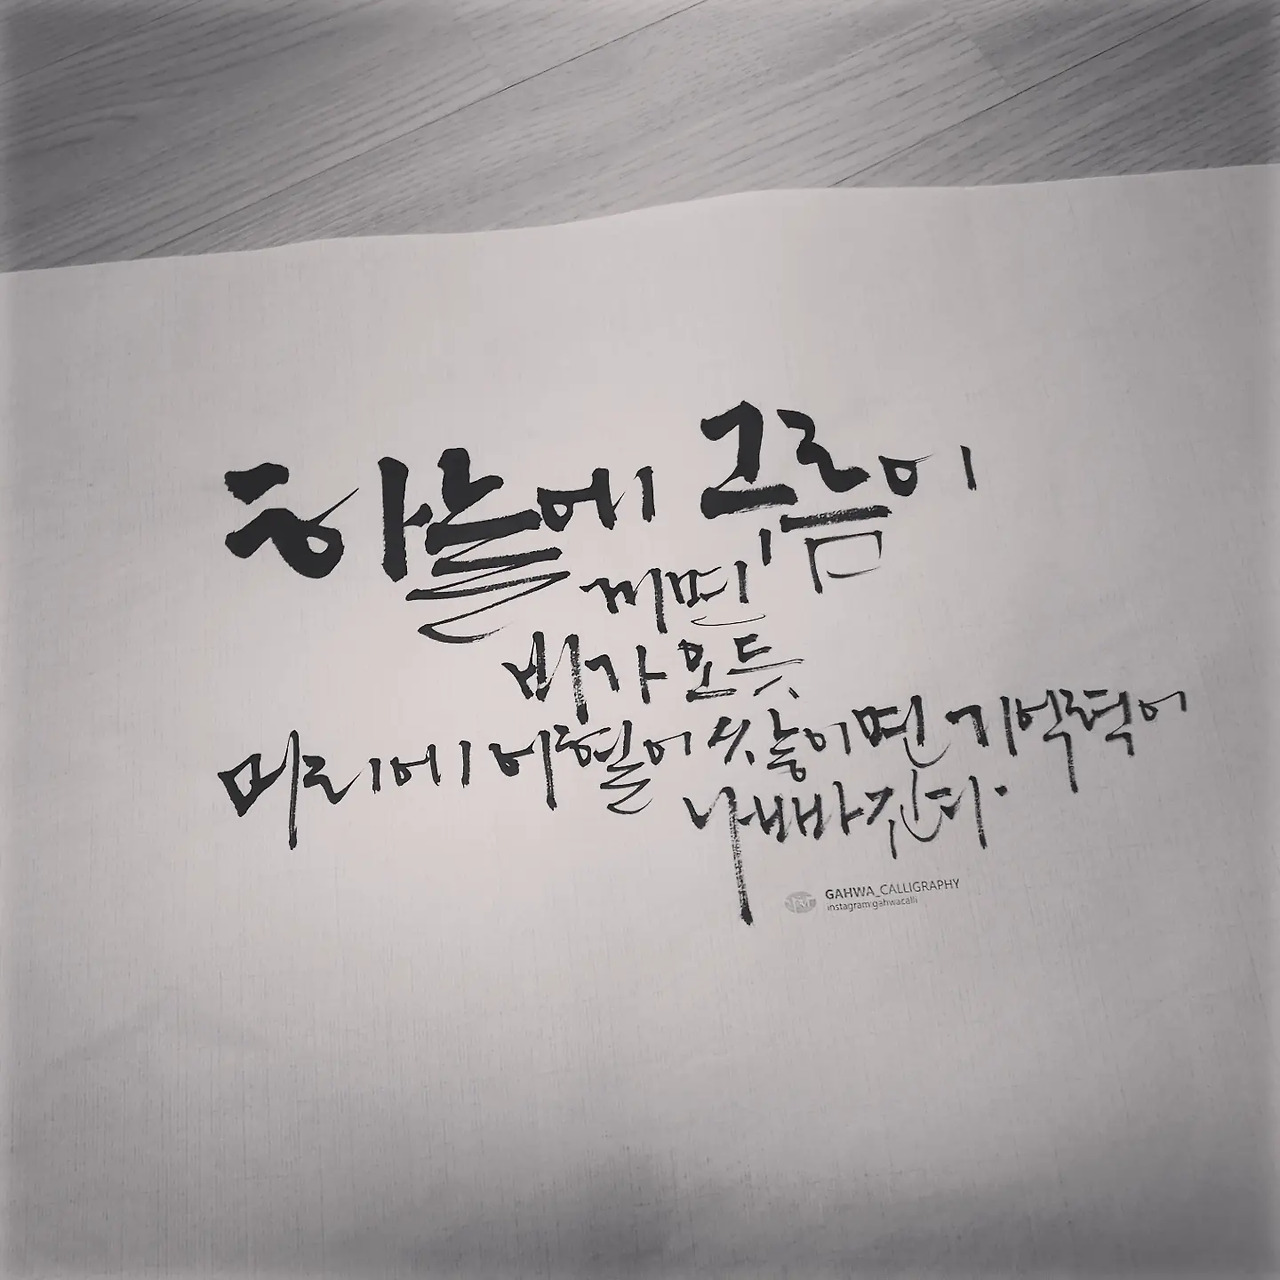 하늘에 구름이
끼면
비가 오듯
머리에 어혈이 쌓이면 기억력이
나빠진다.
GAHWA_CALLIGRAPHY
instagram:gahwacalli